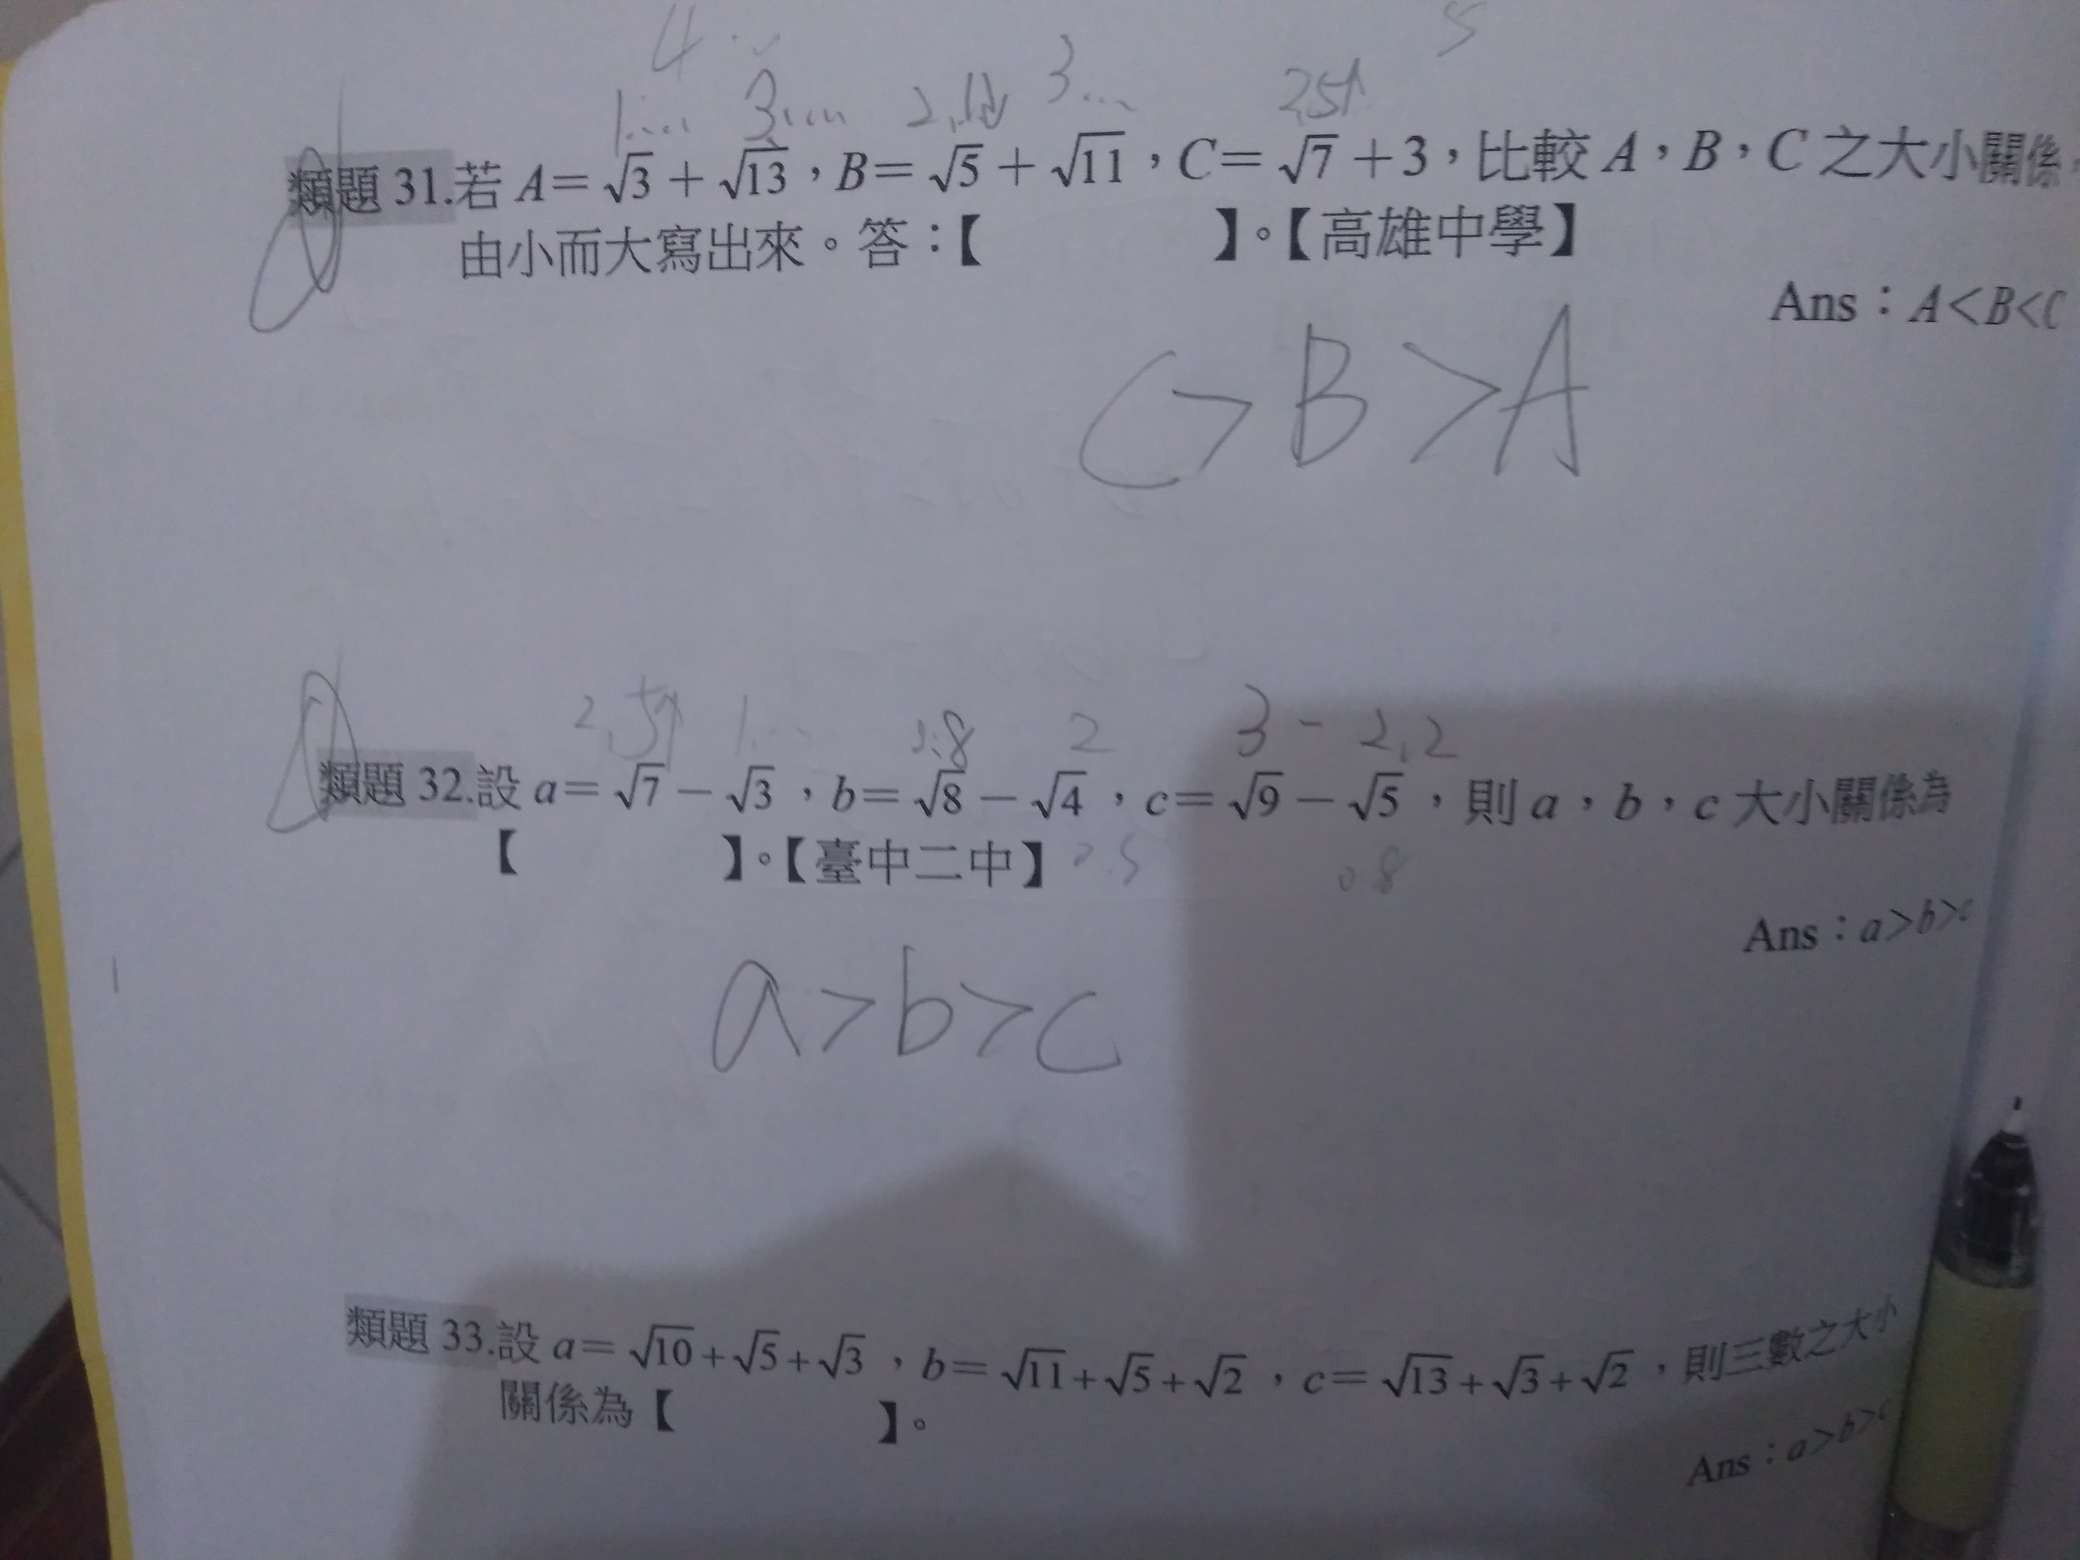 4
1.... 3.... 2.1 3... 2.5↑ 5
類題 31.若 A=√3+√13,B=√5+√11,C=√7+3,比較 A,B,C 之大小關係,
由小而大寫出來。答:【 】。【高雄中學】
Ans:A<B<C
C>B>A
2.5↑ 1... 2.8 2 3 - 2.2
類題 32.設 a=√7-√3,b=√8-√4,c=√9-√5,則 a,b,c 大小關係為
【 】。【臺中二中】
0.8
Ans:a>b>c
a>b>c
類題 33.設 a=√10+√5+√3,b=√11+√5+√2,c=√13+√3+√2,則三數之大小
關係為【 】。
Ans:a>b>c